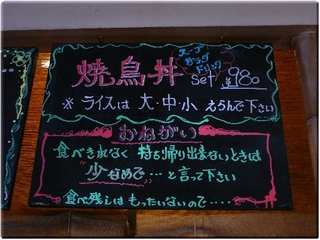 焼鳥丼 スープ サラダ ドリンク set ¥980
※ ライスは 大・中・小 えらんで下さい
おねがい
食べきれなく 持ち帰り出来ないときは
"少なめで"… と言って下さい
食べ残しは もったいないので・・・・